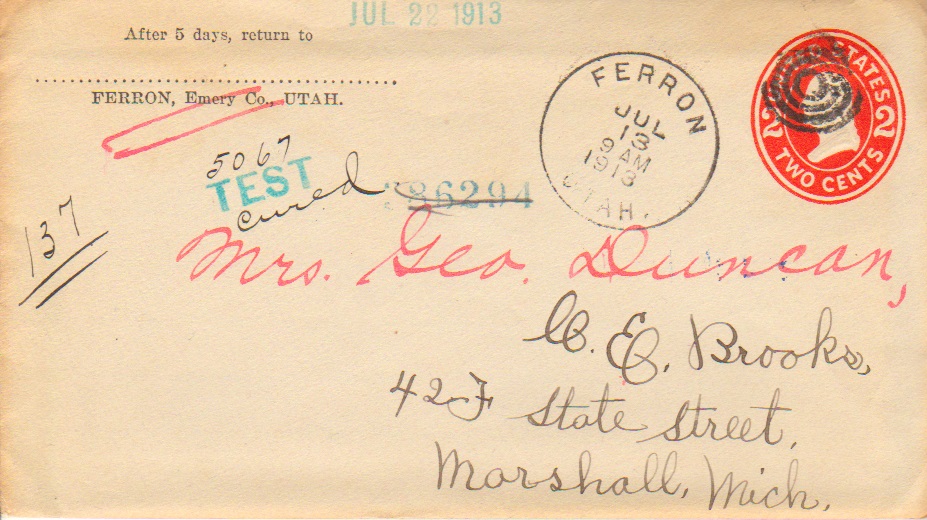 JUL 22 1913
After 5 days, return to
FERRON, Emery Co., UTAH.
5067
TEST
cured
286294
137
FERRON
JUL
13
9 AM
1913
UTAH.
STATES
2 2
TWO CENTS
Mrs. Geo. Duncan,
C. E. Brooks,
State Street,
Marshall, Mich.